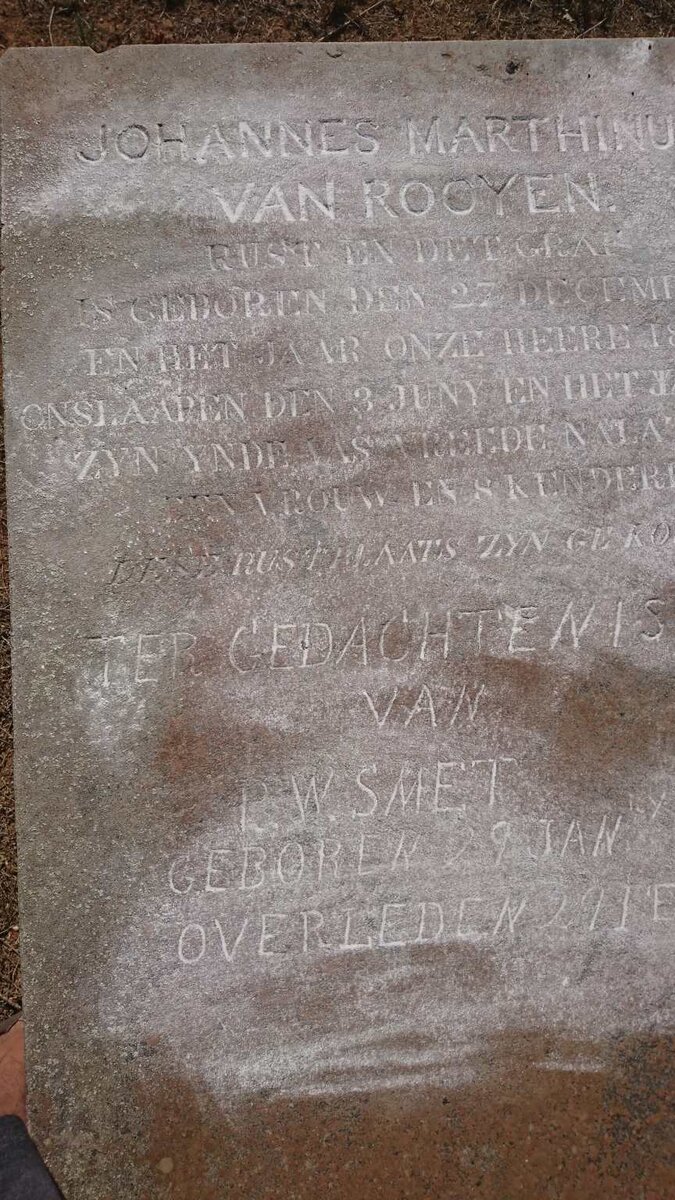 JOHANNES MARTHINU
VAN ROOYEN.
RUST EN DET GRAF
IS GEBOREN DEN 27 DECEME
EN HET JAAR ONZE HEERE 18
ONSLAAPEN DEN 3 JUNY EN HET JA
ZYN YNDE VAS VREEDE NALA
EEN VROUW EN 8 KENDER
DESE RUSTPLAATS ZYN GE KO
TER GEDACHTENIS
VAN
P.W. SMET
GEBOREN 29 JAN
OVERLEDEN 29 FE